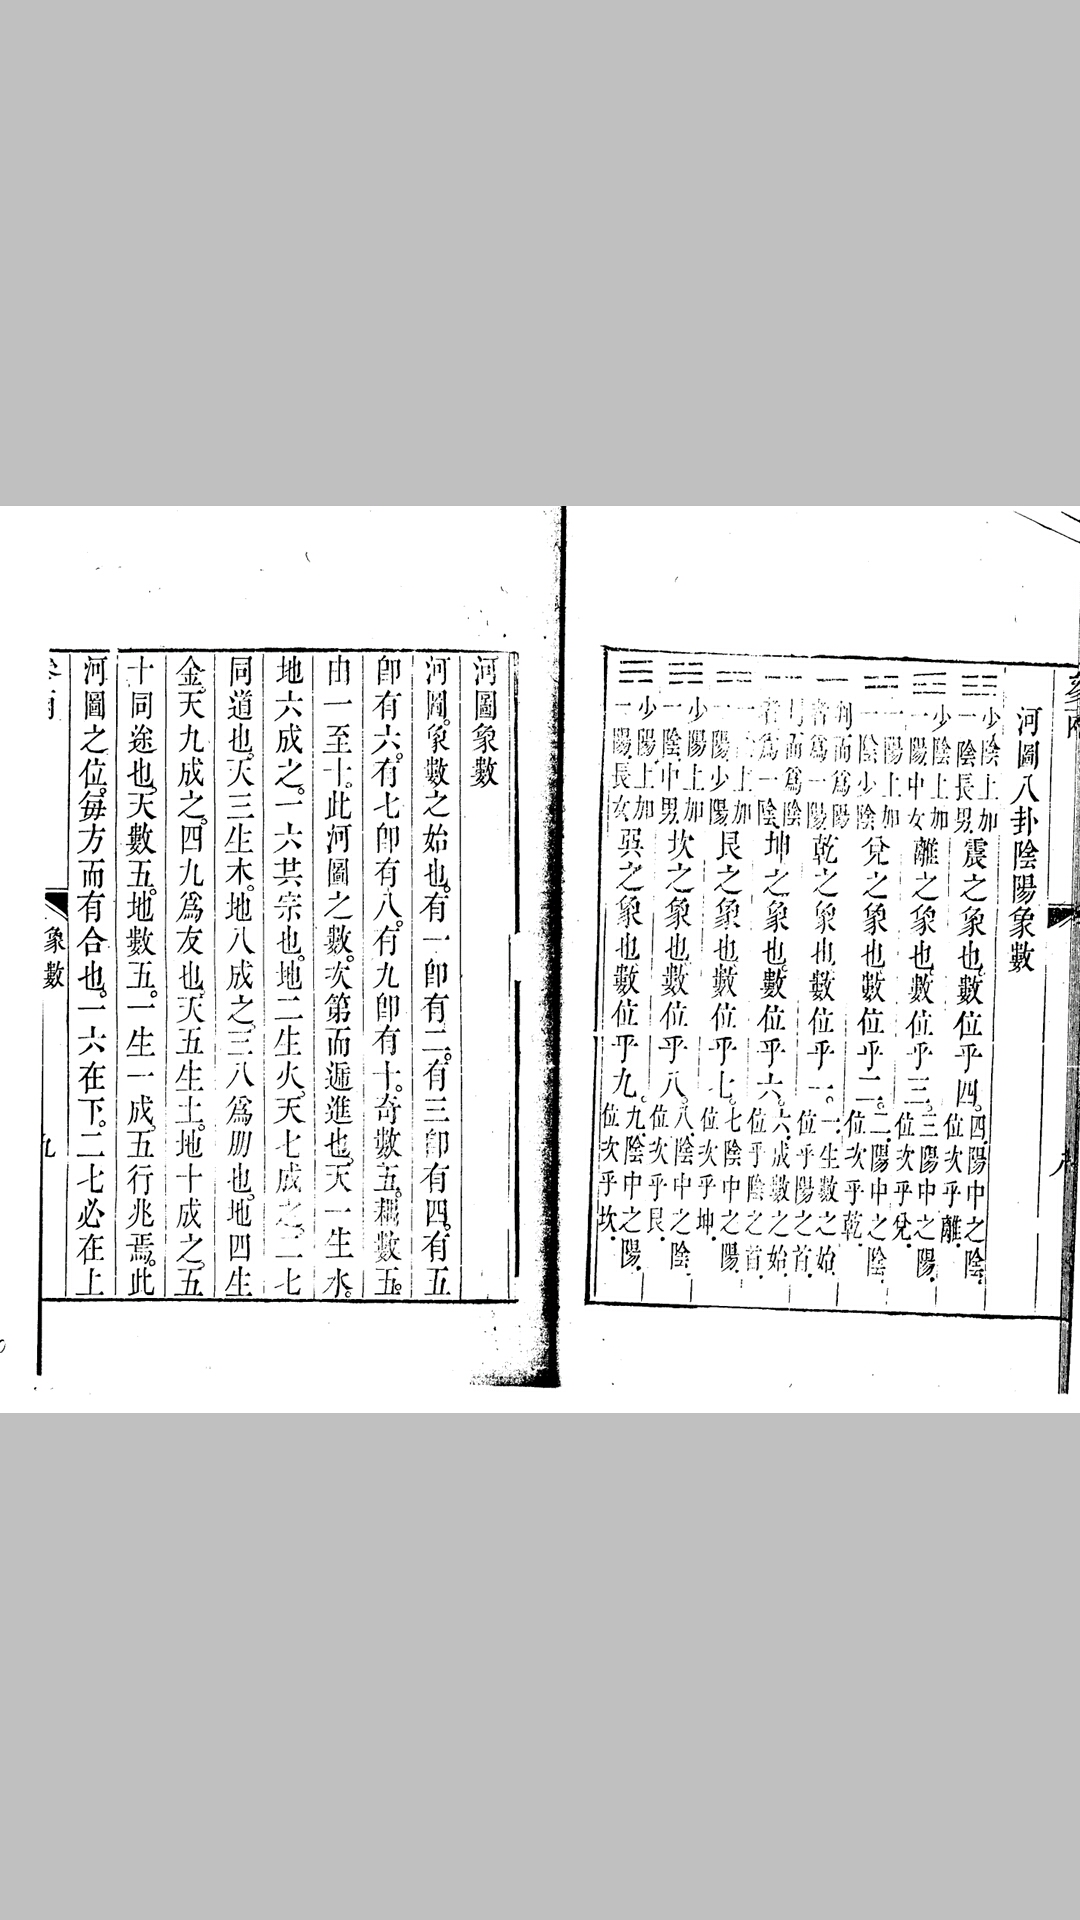 河圖八卦陰陽象數
☳少陰上加
一陰長男震之象也數位乎四。四陽中之陰.
位次乎離.
少陰上加
一陽中女離之象也數位乎三。三陽中之陽.
位次乎兌.
一陽上加
一陰少陰兌之象也數位乎二。二陽中之陰.
位次乎乾.
爲陽
爲一陽乾之象也數位乎一。一生數之始.
位乎陽之首.
爲陰
爲一陰坤之象也數位乎六。六成數之始.
位乎陰之首.
上加
一陽少陽艮之象也數位乎七。七陰中之陽.
位次乎坤.
少陽上加
一陰中男坎之象也數位乎八。八陰中之陰.
位次乎艮.
少陽上加
一陽長女巽之象也數位乎九。九陰中之陽.
位次乎坎.
河圖象數
河圖。象數之始也。有一卽有二。有三卽有四。有五
卽有六。有七卽有八。有九卽有十。奇數五。耦數五。
由一至十。此河圖之數。次第而遞進也。天一生水。
地六成之。一六其宗也。地二生火。天七成之。二七
同道也。天三生木。地八成之。三八爲朋也。地四生
金。天九成之。四九爲友也。天五生土。地十成之。五
十同途也。天數五。地數五。一生一成。五行兆焉。此
河圖之位。每方而有合也。一六在下。二七必在上
象數
九